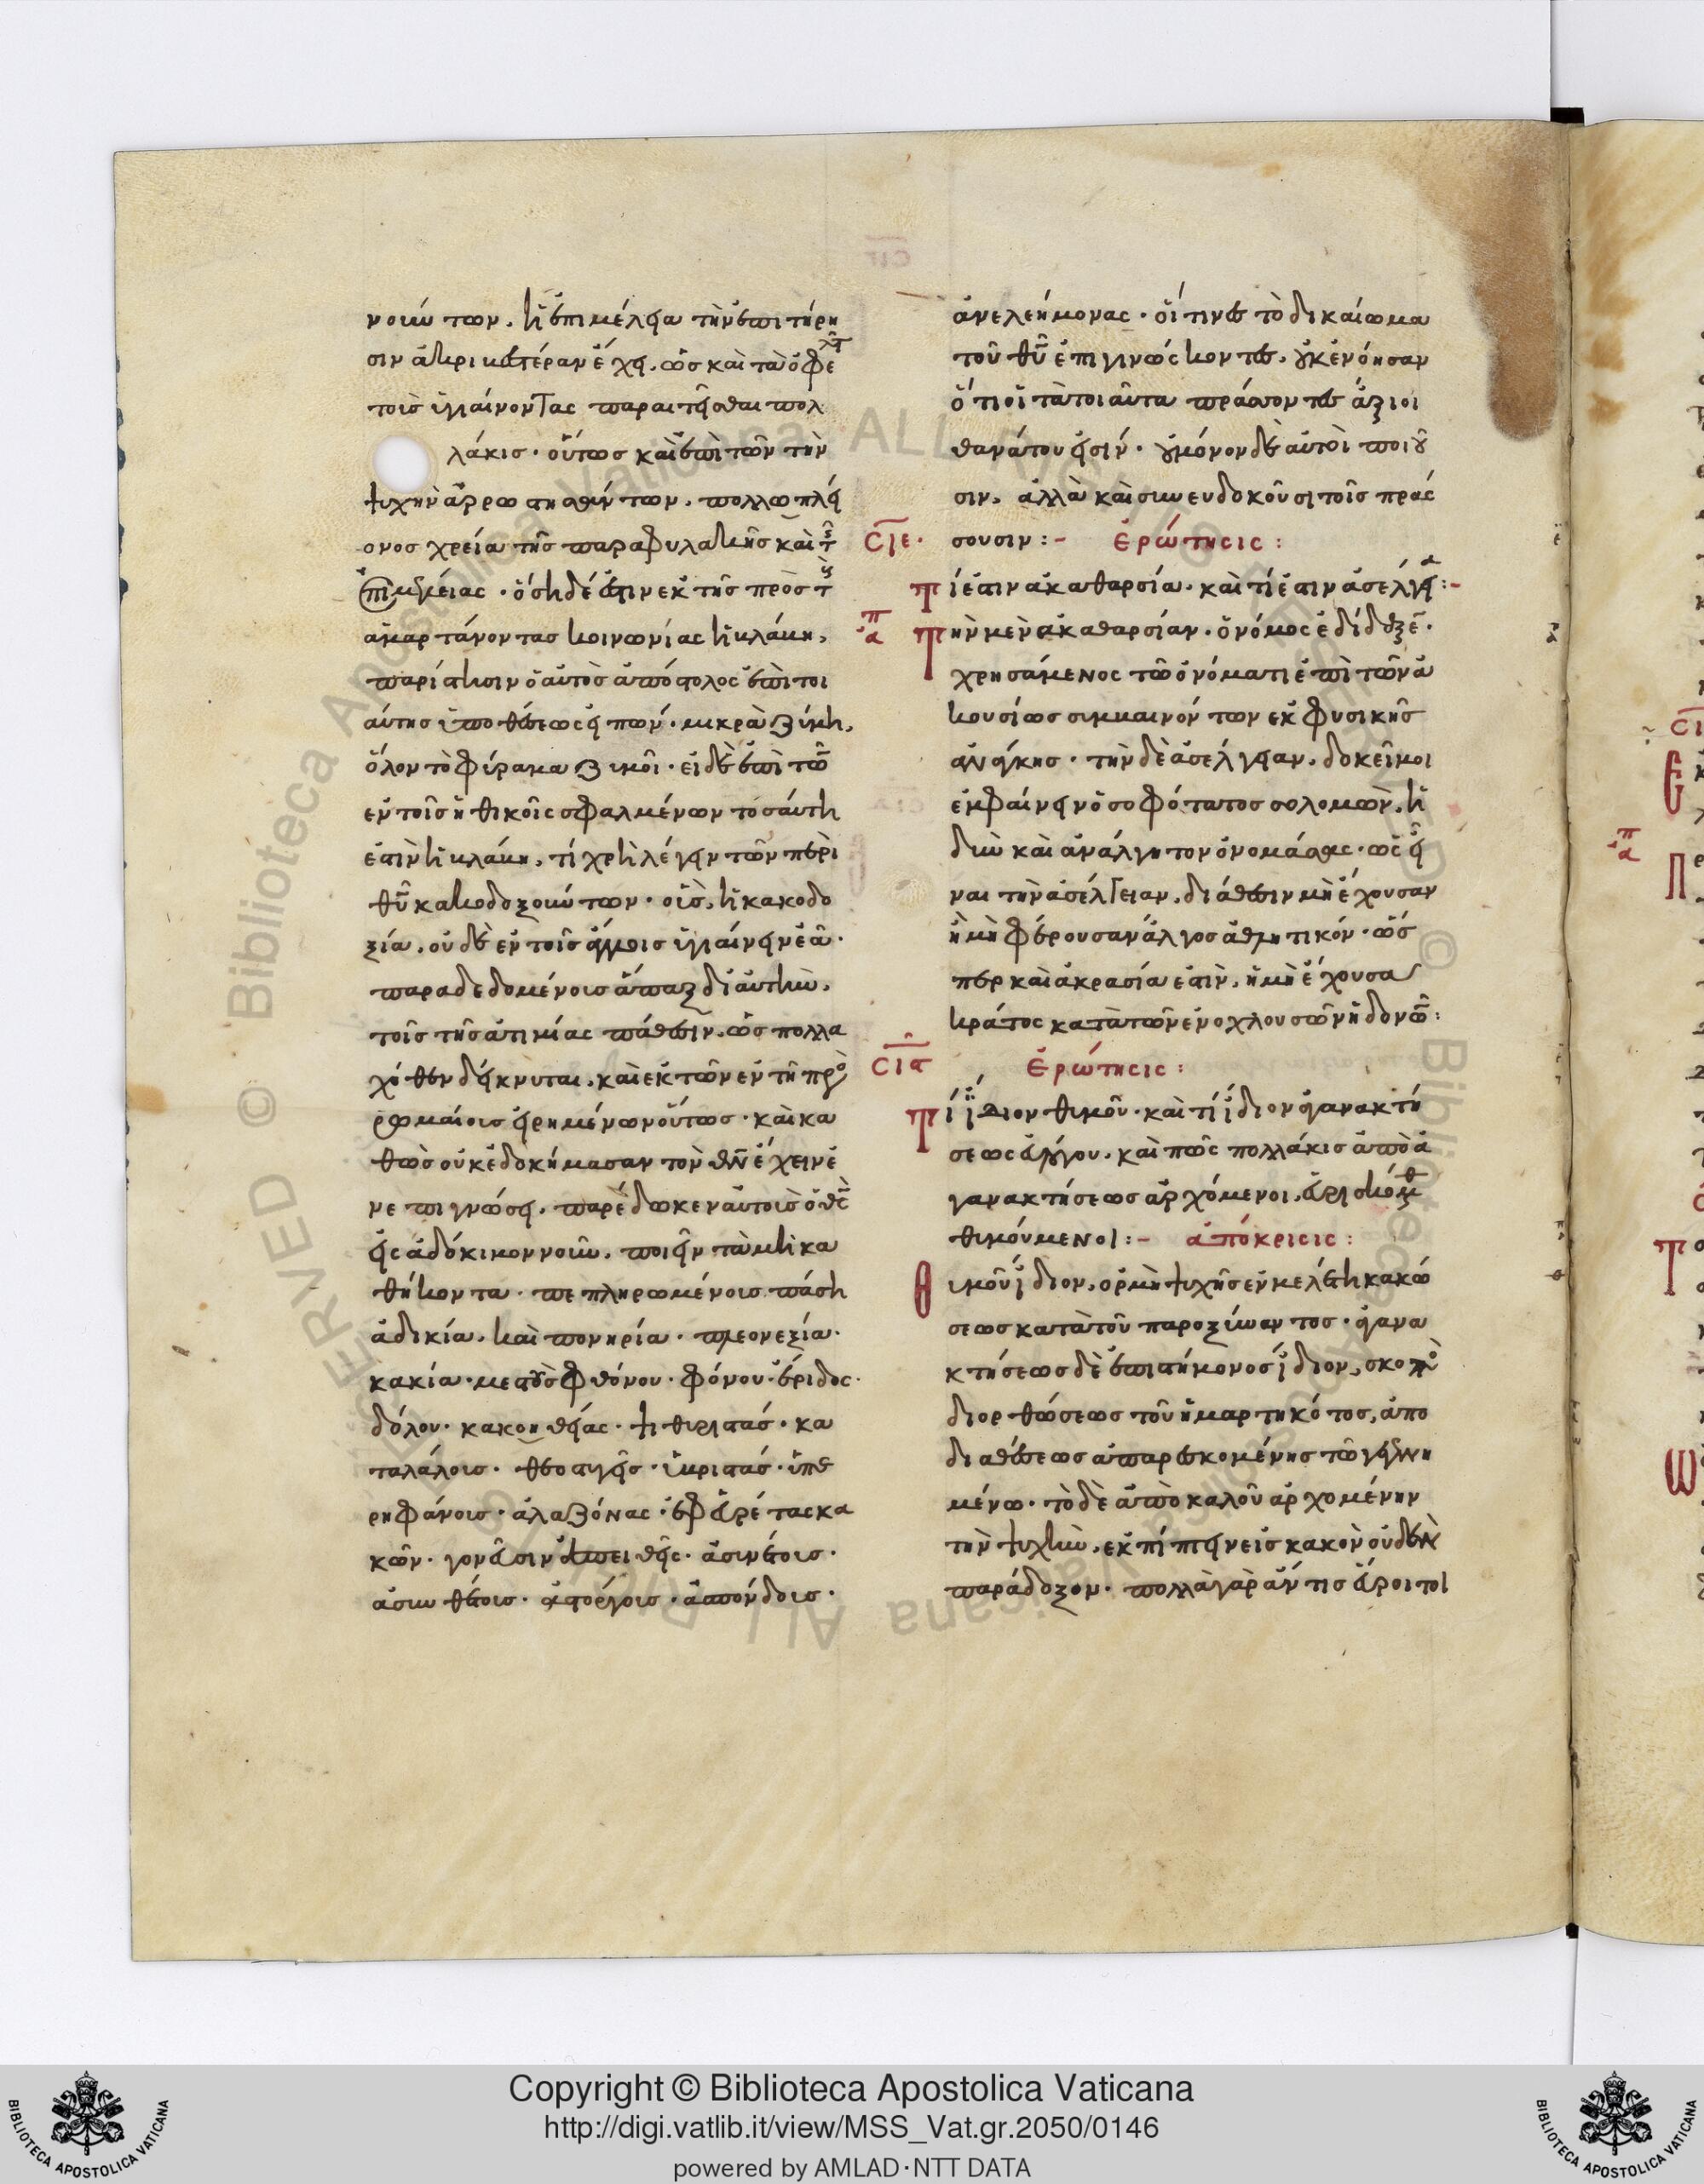 νοούντων. ἡ ἐπιμέλεια τὴν ἐπιτήρη
σιν ἀκριβεστέραν ἔχει. ὡς καὶ τὰ ὀφε
τοὺς ὑγιαίνοντας παραιτεῖσθαι πολ
λάκις· οὕτως καὶ ἐπὶ τῶν τὴν
ψυχὴν ἀρρωστησάντων. πολλῶ πλεί
ονος χρεία τῆς παραφυλακῆς καὶ τ
ἐπιμελείας· ὅση δέ ἐστιν ἐκ τῆς πρὸς τ
ἁμαρτάνοντας κοινωνίας ἡ βλάβη,
παρίστησιν ὁ αὐτὸς ἀπόστολος ἐπὶ τοι
αύτης ὑποθέσεως εἰπών· μικρὰ ζύμη,
ὅλον τὸ φύραμα ζυμοῖ· εἰ δὲ ἐπὶ τῶν
ἐν τοῖς ἠθικοῖς σφαλμένων τοσαύτη
ἐστὶν ἡ βλάβη, τί χρὴ λέγειν τῶν περὶ
θυ κακοδοξούντων· οὓς ἡ κακοδο
ξία, οὐδὲ ἐν τοῖς ἄλλοις ὑγιαίνειν ἐᾶ·
παραδεδομένοις ἅπαξ δι αὐτὴν,
τοῖς τῆς ἀτιμίας πάθεσιν. ὡς πολλα
χόθεν δείκνυται, καὶ ἐκ τῶν ἐν τῆ πρὸς
ρωμαίοις εἰρημένων οὕτως· καὶ κα
θὼς οὐκ ἐδοκήμασαν τὸν θν ἔχειν ἐ
νε πιγνώσει, παρέδωκεν αὐτοὺς ὁ θς
εἰς ἀδόκιμον νοῦν, ποιεῖν τὰ μὴ κα
θήκοντα· πεπληρωμένους πάση
ἀδικία, καὶ πονηρία· πλεονεξία·
κακία· μεστοὺς φθόνου· φόνου· ἔριδος·
δόλου· κακοηθείας· ψιθυριστάς· κα
ταλάλους· θεοστυγεῖς· ὑβριστάς· ὑπε
ρηφάνους· ἀλαζόνας· ἐφευρέτας κα
κῶν· γονεῦσιν ἀπειθεῖς· ἀσυνέτους·
ἀσυνθέτους· ἀστόργους· ἀσπόνδους·
ἀνελεήμονας· οἵτινες τὸ δικαίωμα
τοῦ θυ ἐπιγινώσκοντες, οὐκ ἐνόησαν
ὅτι οἱ τὰ τοιαῦτα πράσσοντες ἄξιοι
θανάτου εἰσίν· οὐ μόνον δὲ αὐτοὶ ποιοῦ
σιν, ἀλλὰ καὶ συνευδοκοῦσι τοῖς πράσ
σιε· σουσιν:- ἐρώτησις:
Τί ἐστιν ἀκαθαρσία, καὶ τί ἐστιν ἀσέλγεια:-
απ Τὴν μὲν ἀκαθαρσίαν, ὁ νόμος ἐδίδαξεν·
χρησάμενος τῶ ὀνόματι ἐπὶ τῶν ἀ
κουσίως συμβαινόντων ἐκ φυσικῆς
ἀνάγκης· τὴν δὲ ἀσέλγειαν, δοκεῖ μοι
ἐμφαίνειν ὁ σοφότατος σολομῶν, ἡ
δὺν καὶ ἀνάλγητον ὀνομάσας· ὡς εἶ
ναι τὴν ἀσέλγειαν, διάθεσιν μὴ ἔχουσαν
ἢ μὴ φέρουσαν ἄλγος ἀθλητικόν· ὥσ
περ καὶ ἀκρασία ἐστὶν, ἡ μὴ ἔχουσα
κράτος κατὰ τῶν ἐνοχλουσῶν ἡδονῶν:
σις ἐρώτησις:
Τί ἴδιον θυμοῦ· καὶ τί ἴδιον ἀγανακτή
σεως εὐλόγου, καὶ πῶς πολλάκις ἀπὸ ἀ
γανακτήσεως ἀρχόμενοι, εὑρισκόμεθα
θυμούμενοι:- ἀπόκρισις:
Θυμοῦ ἴδιον, ὁρμὴ ψυχῆς ἐν μελέτη κακώ
σεως κατὰ τοῦ παροξύναντος· ἀγανα
κτήσεως δὲ ἐπιστήμονος ἴδιον, σκοπὸς
διορθώσεως τοῦ ἡμαρτηκότος, ἀπὸ
διαθέσεως ἀπαρεσκομένης τῶ γεγενη
μένω· τὸ δὲ ἀπὸ καλοῦ ἀρχομένην
τὴν ψυχὴν, ἐκπίπτειν εἰς κακὸν οὐδὲν
παράδοξον· πολλὰ γὰρ ἄν τις εὕροι τοι
Copyright © Biblioteca Apostolica Vaticana
http://digi.vatlib.it/view/MSS_Vat.gr.2050/0146
powered by AMLAD·NTT DATA